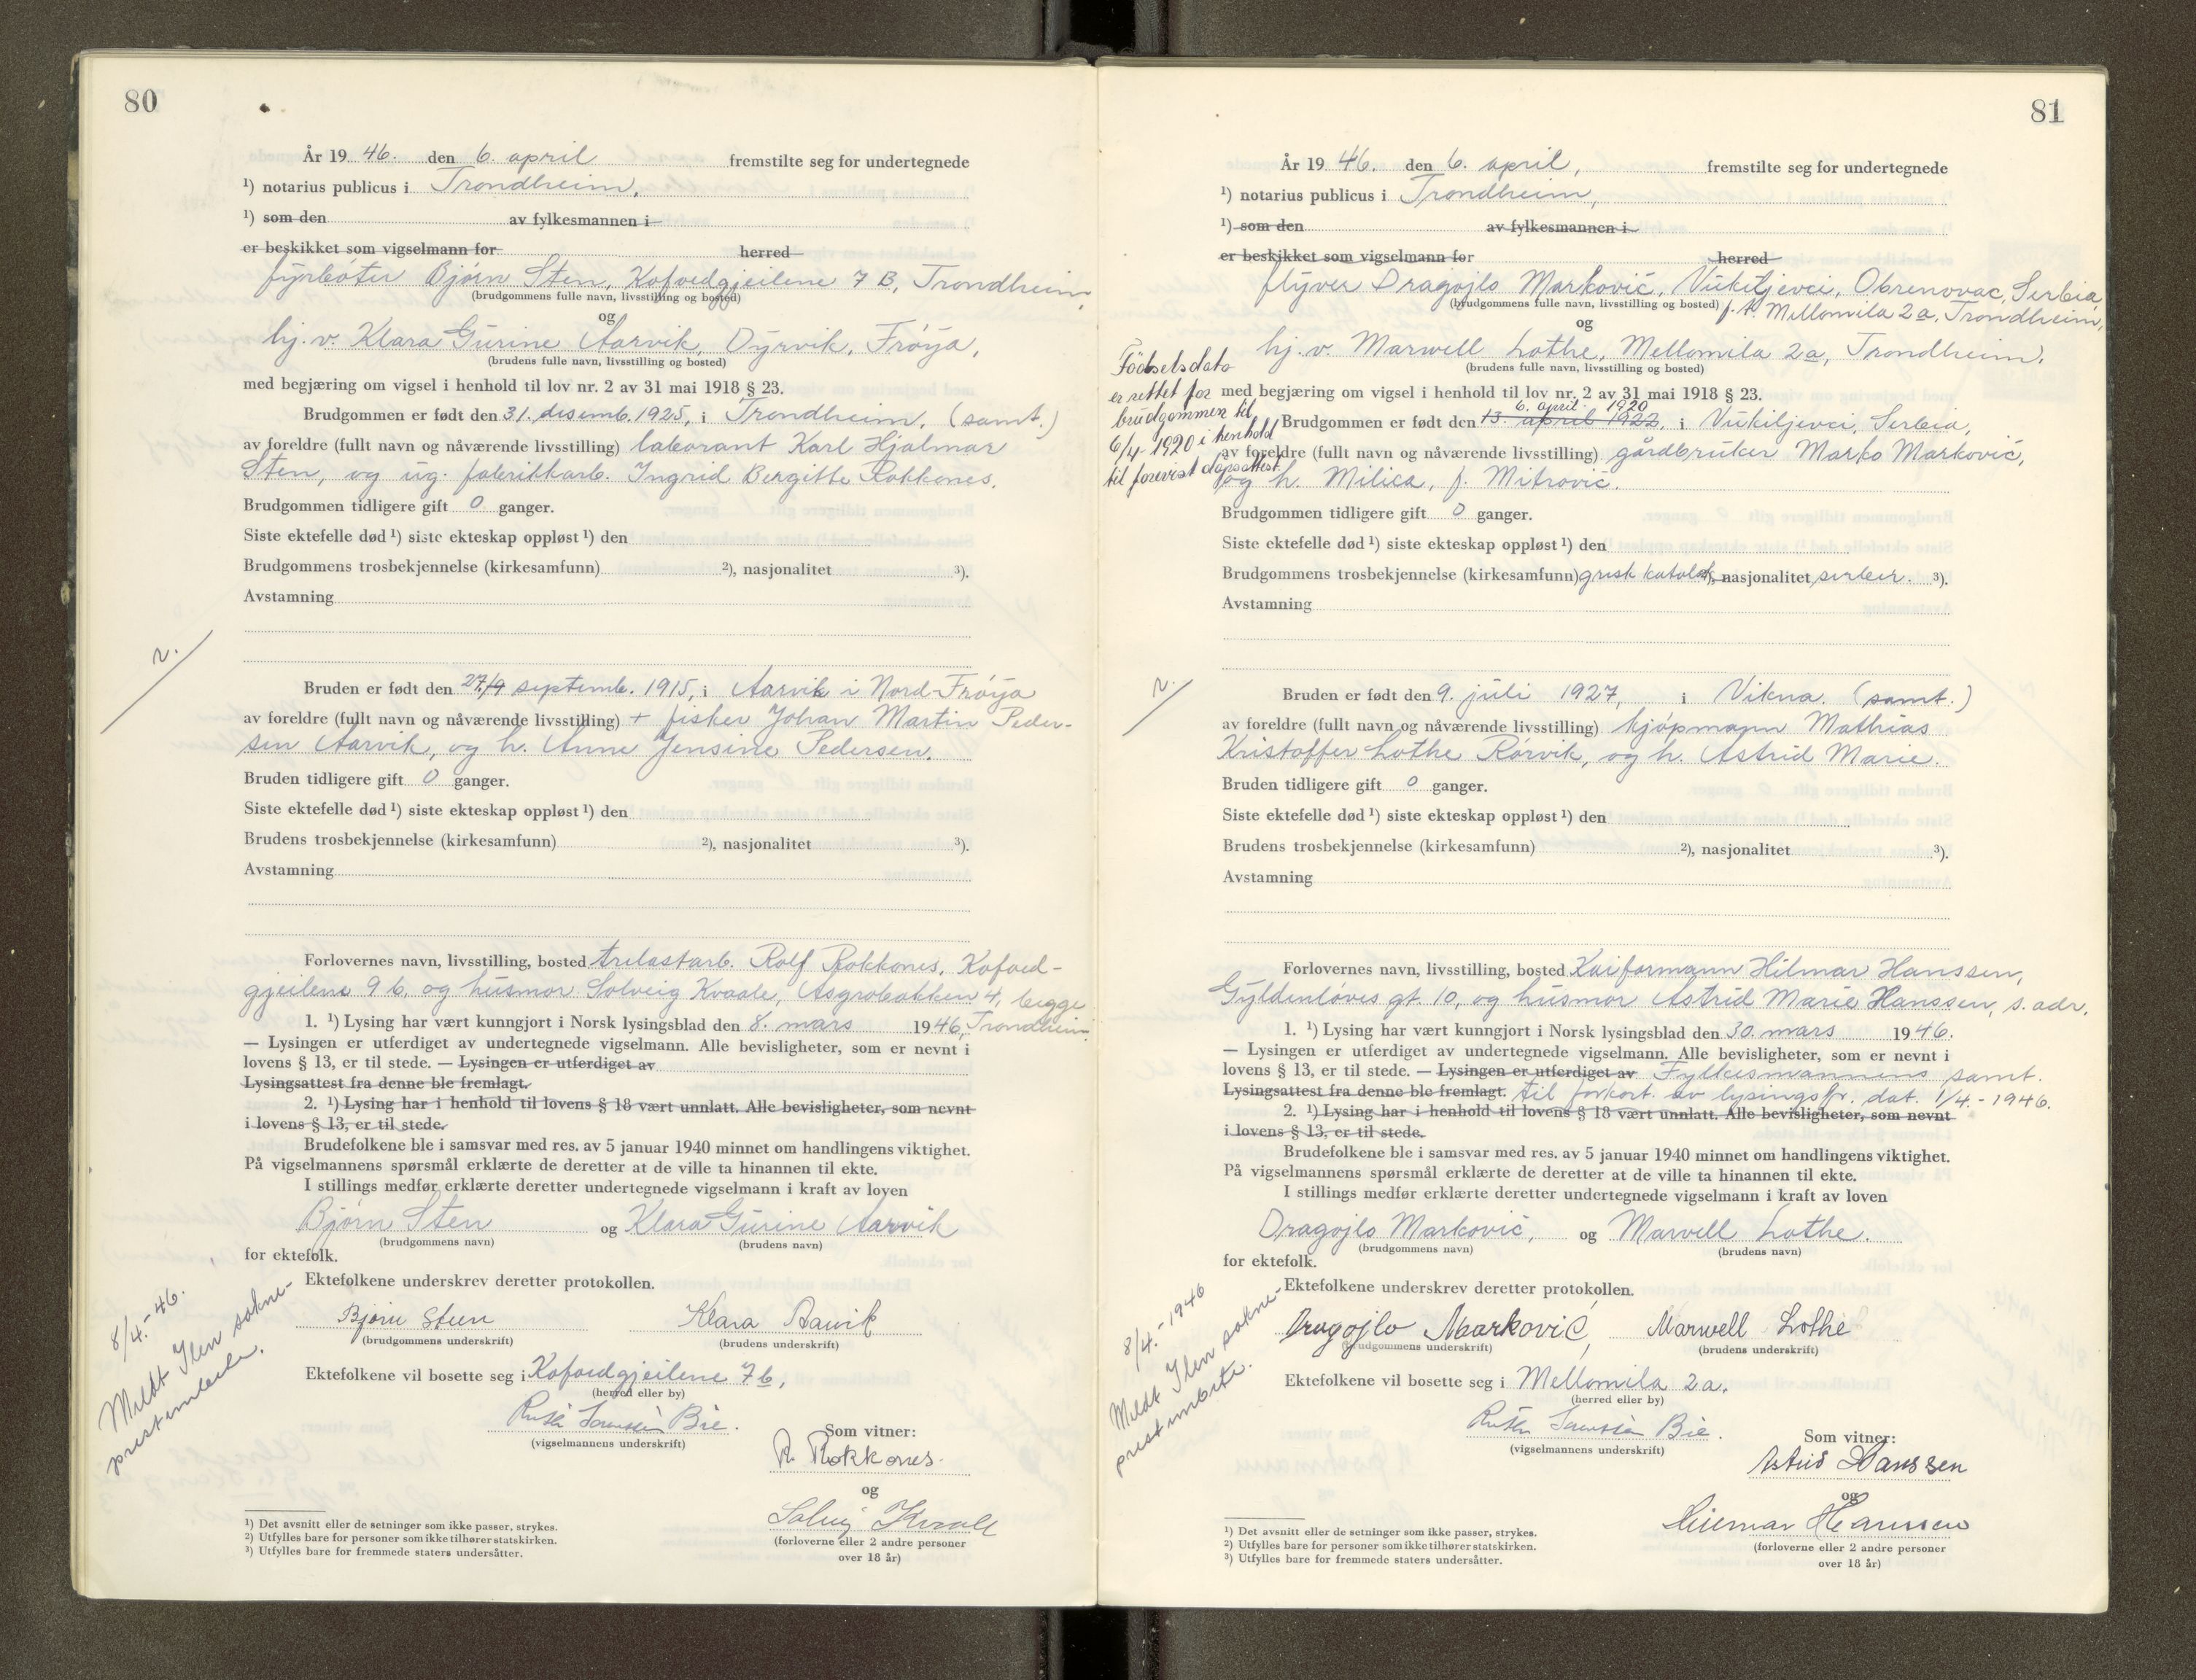 80
År 19 46. den 6. april fremstilte seg for undertegnede
¹) notarius publicus i Trondheim,
¹) som den av fylkesmannen i
er beskikket som vigselmann for herred
fyrbøter Bjørn Sten, Kofoedgjeilene 7 B, Trondheim,
(brudgommens fulle navn, livsstilling og bosted)
og
hj. v. Klara Gurine Aarvik, Dyrvik, Frøya,
(brudens fulle navn, livsstilling og bosted)
med begjæring om vigsel i henhold til lov nr. 2 av 31 mai 1918 § 23.
Brudgommen er født den 31. desemb. 1925, i Trondheim, (samt.)
av foreldre (fullt navn og nåværende livsstilling) laborant Karl Hjalmar
Sten, og ug. fabrikkarb. Ingrid Bergitte Rokkones.
Brudgommen tidligere gift 0 ganger.
Siste ektefelle død ¹) siste ekteskap oppløst ¹) den
Brudgommens trosbekjennelse (kirkesamfunn) ²), nasjonalitet ³).
Avstamning
2.
Bruden er født den 27/9 septemb. 1915, i Aarvik i Nord-Frøya
av foreldre (fullt navn og nåværende livsstilling) + fisker Johan Martin Peder-
sen Aarvik, og h. Anne Jensine Pedersen.
Bruden tidligere gift 0 ganger.
Siste ektefelle død ¹) siste ekteskap oppløst ¹) den
Brudens trosbekjennelse (kirkesamfunn) ²), nasjonalitet ³).
Avstamning
Forlovernes navn, livsstilling, bosted trelastarb. Rolf Rokkones, Kofoed-
gjeilene 9 b, og husmor Solveig Kvaale, Asgrobakken 4, begge
1. ¹) Lysing har vært kunngjort i Norsk lysingsblad den 8. mars 1946, Trondheim.
— Lysingen er utferdiget av undertegnede vigselmann. Alle bevisligheter, som er nevnt i
lovens § 13, er til stede. — Lysingen er utferdiget av
Lysingsattest fra denne ble fremlagt.
2. ¹) Lysing har i henhold til lovens § 18 vært unnlatt. Alle bevisligheter, som nevnt
i lovens § 13, er til stede.
Brudefolkene ble i samsvar med res. av 5 januar 1940 minnet om handlingens viktighet.
På vigselmannens spørsmål erklærte de deretter at de ville ta hinannen til ekte.
I stillings medfør erklærte deretter undertegnede vigselmann i kraft av loven
Bjørn Sten og Klara Gurine Aarvik
(brudgommens navn) (brudens navn)
for ektefolk.
Ektefolkene underskrev deretter protokollen.
8/4.-46.
Meldt Ilen sokne-
prestembede.
Bjørn Steen Klara Aarvik
(brudgommens underskrift) (brudens underskrift)
Ektefolkene vil bosette seg i Kofoedgjeilene 7 b,
(herred eller by)
Bie.
(vigselmannens underskrift)
Som vitner:
R. Rokkones.
og
Solveig Kvaale
(forloverne eller 2 andre personer
over 18 år)
¹) Det avsnitt eller de setninger som ikke passer, strykes.
²) Utfylles bare for personer som ikke tilhører statskirken.
³) Utfylles bare for fremmede staters undersåtter.
81
År 19 46. den 6. april, fremstilte seg for undertegnede
¹) notarius publicus i Trondheim,
¹) som den av fylkesmannen i
er beskikket som vigselmann for herred
flyver Dragojlo Marković, Vukiljevci, Obrenovac, Serbia,
(brudgommens fulle navn, livsstilling og bosted) f. t. Mellomila 2 a, Trondheim,
og
hj. v. Marwell Lothe, Mellomila 2 a, Trondheim.
(brudens fulle navn, livsstilling og bosted)
Fødselsdato
er rettet for
brudgommen til
6/4-1920 i henhold
til forevist dåpsattest.
med begjæring om vigsel i henhold til lov nr. 2 av 31 mai 1918 § 23.
6. april 1920
Brudgommen er født den 13. april 1922, i Vukiljevci, Serbia,
av foreldre (fullt navn og nåværende livsstilling) gårdbruker Marko Marković,
og h. Milica, f. Mitrović.
Brudgommen tidligere gift 0 ganger.
Siste ektefelle død ¹) siste ekteskap oppløst ¹) den
Brudgommens trosbekjennelse (kirkesamfunn) gresk katolsk ²), nasjonalitet serber. ³).
Avstamning
2.
Bruden er født den 9. juli 1927, i Vikna. (samt.)
av foreldre (fullt navn og nåværende livsstilling) kjøpmann Mathias
Kristoffer Lothe Rørvik, og h. Astrid Marie.
Bruden tidligere gift 0 ganger.
Siste ektefelle død ¹) siste ekteskap oppløst ¹) den
Brudens trosbekjennelse (kirkesamfunn) ²), nasjonalitet ³).
Avstamning
Forlovernes navn, livsstilling, bosted Kaiformann Hilmar Hanssen,
Gyldenløves gt. 10, og husmor Astrid Marie Hanssen, s. adr.
1. ¹) Lysing har vært kunngjort i Norsk lysingsblad den 30. mars 1946.
— Lysingen er utferdiget av undertegnede vigselmann. Alle bevisligheter, som er nevnt i
lovens § 13, er til stede. — Lysingen er utferdiget av Fylkesmannens samt.
Lysingsattest fra denne ble fremlagt. til forkort. av lysingsfr. dat. 1/4.-1946.
2. ¹) Lysing har i henhold til lovens § 18 vært unnlatt. Alle bevisligheter, som nevnt
i lovens § 13, er til stede.
Brudefolkene ble i samsvar med res. av 5 januar 1940 minnet om handlingens viktighet.
På vigselmannens spørsmål erklærte de deretter at de ville ta hinannen til ekte.
I stillings medfør erklærte deretter undertegnede vigselmann i kraft av loven
Dragojlo Marković, og Marvell Lothe.
(brudgommens navn) (brudens navn)
for ektefolk.
Ektefolkene underskrev deretter protokollen.
8/4.-1946
Meldt Ilen sokne-
prestembete.
Dragojlo Marković, Marwell Lothe
(brudgommens underskrift) (brudens underskrift)
Ektefolkene vil bosette seg i Mellomila 2 a.
(herred eller by)
Bie.
(vigselmannens underskrift)
Som vitner:
Astrid Hanssen
og
Hilmar Hanssen
(forloverne eller 2 andre personer
over 18 år)
¹) Det avsnitt eller de setninger som ikke passer, strykes.
²) Utfylles bare for personer som ikke tilhører statskirken.
³) Utfylles bare for fremmede staters undersåtter.